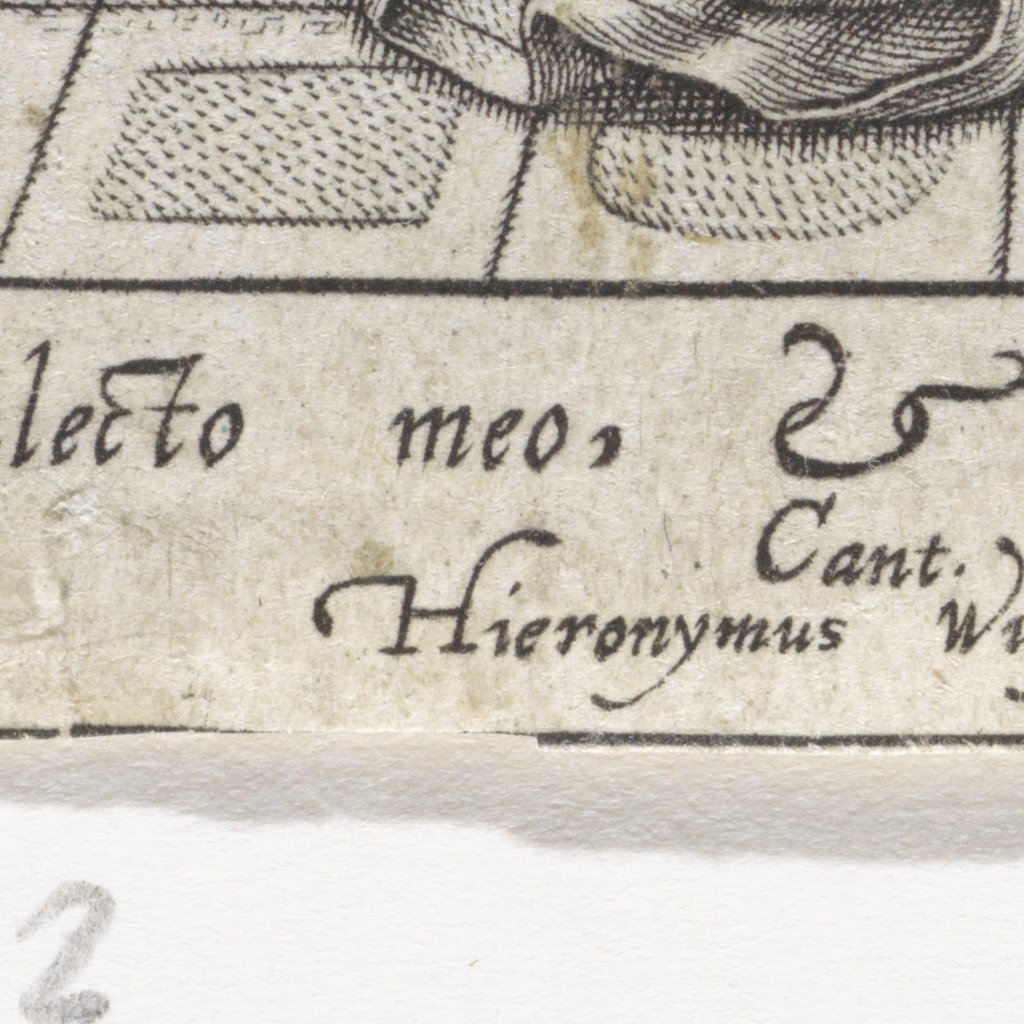 lecto meo, &
Cant.
Hieronymus
2